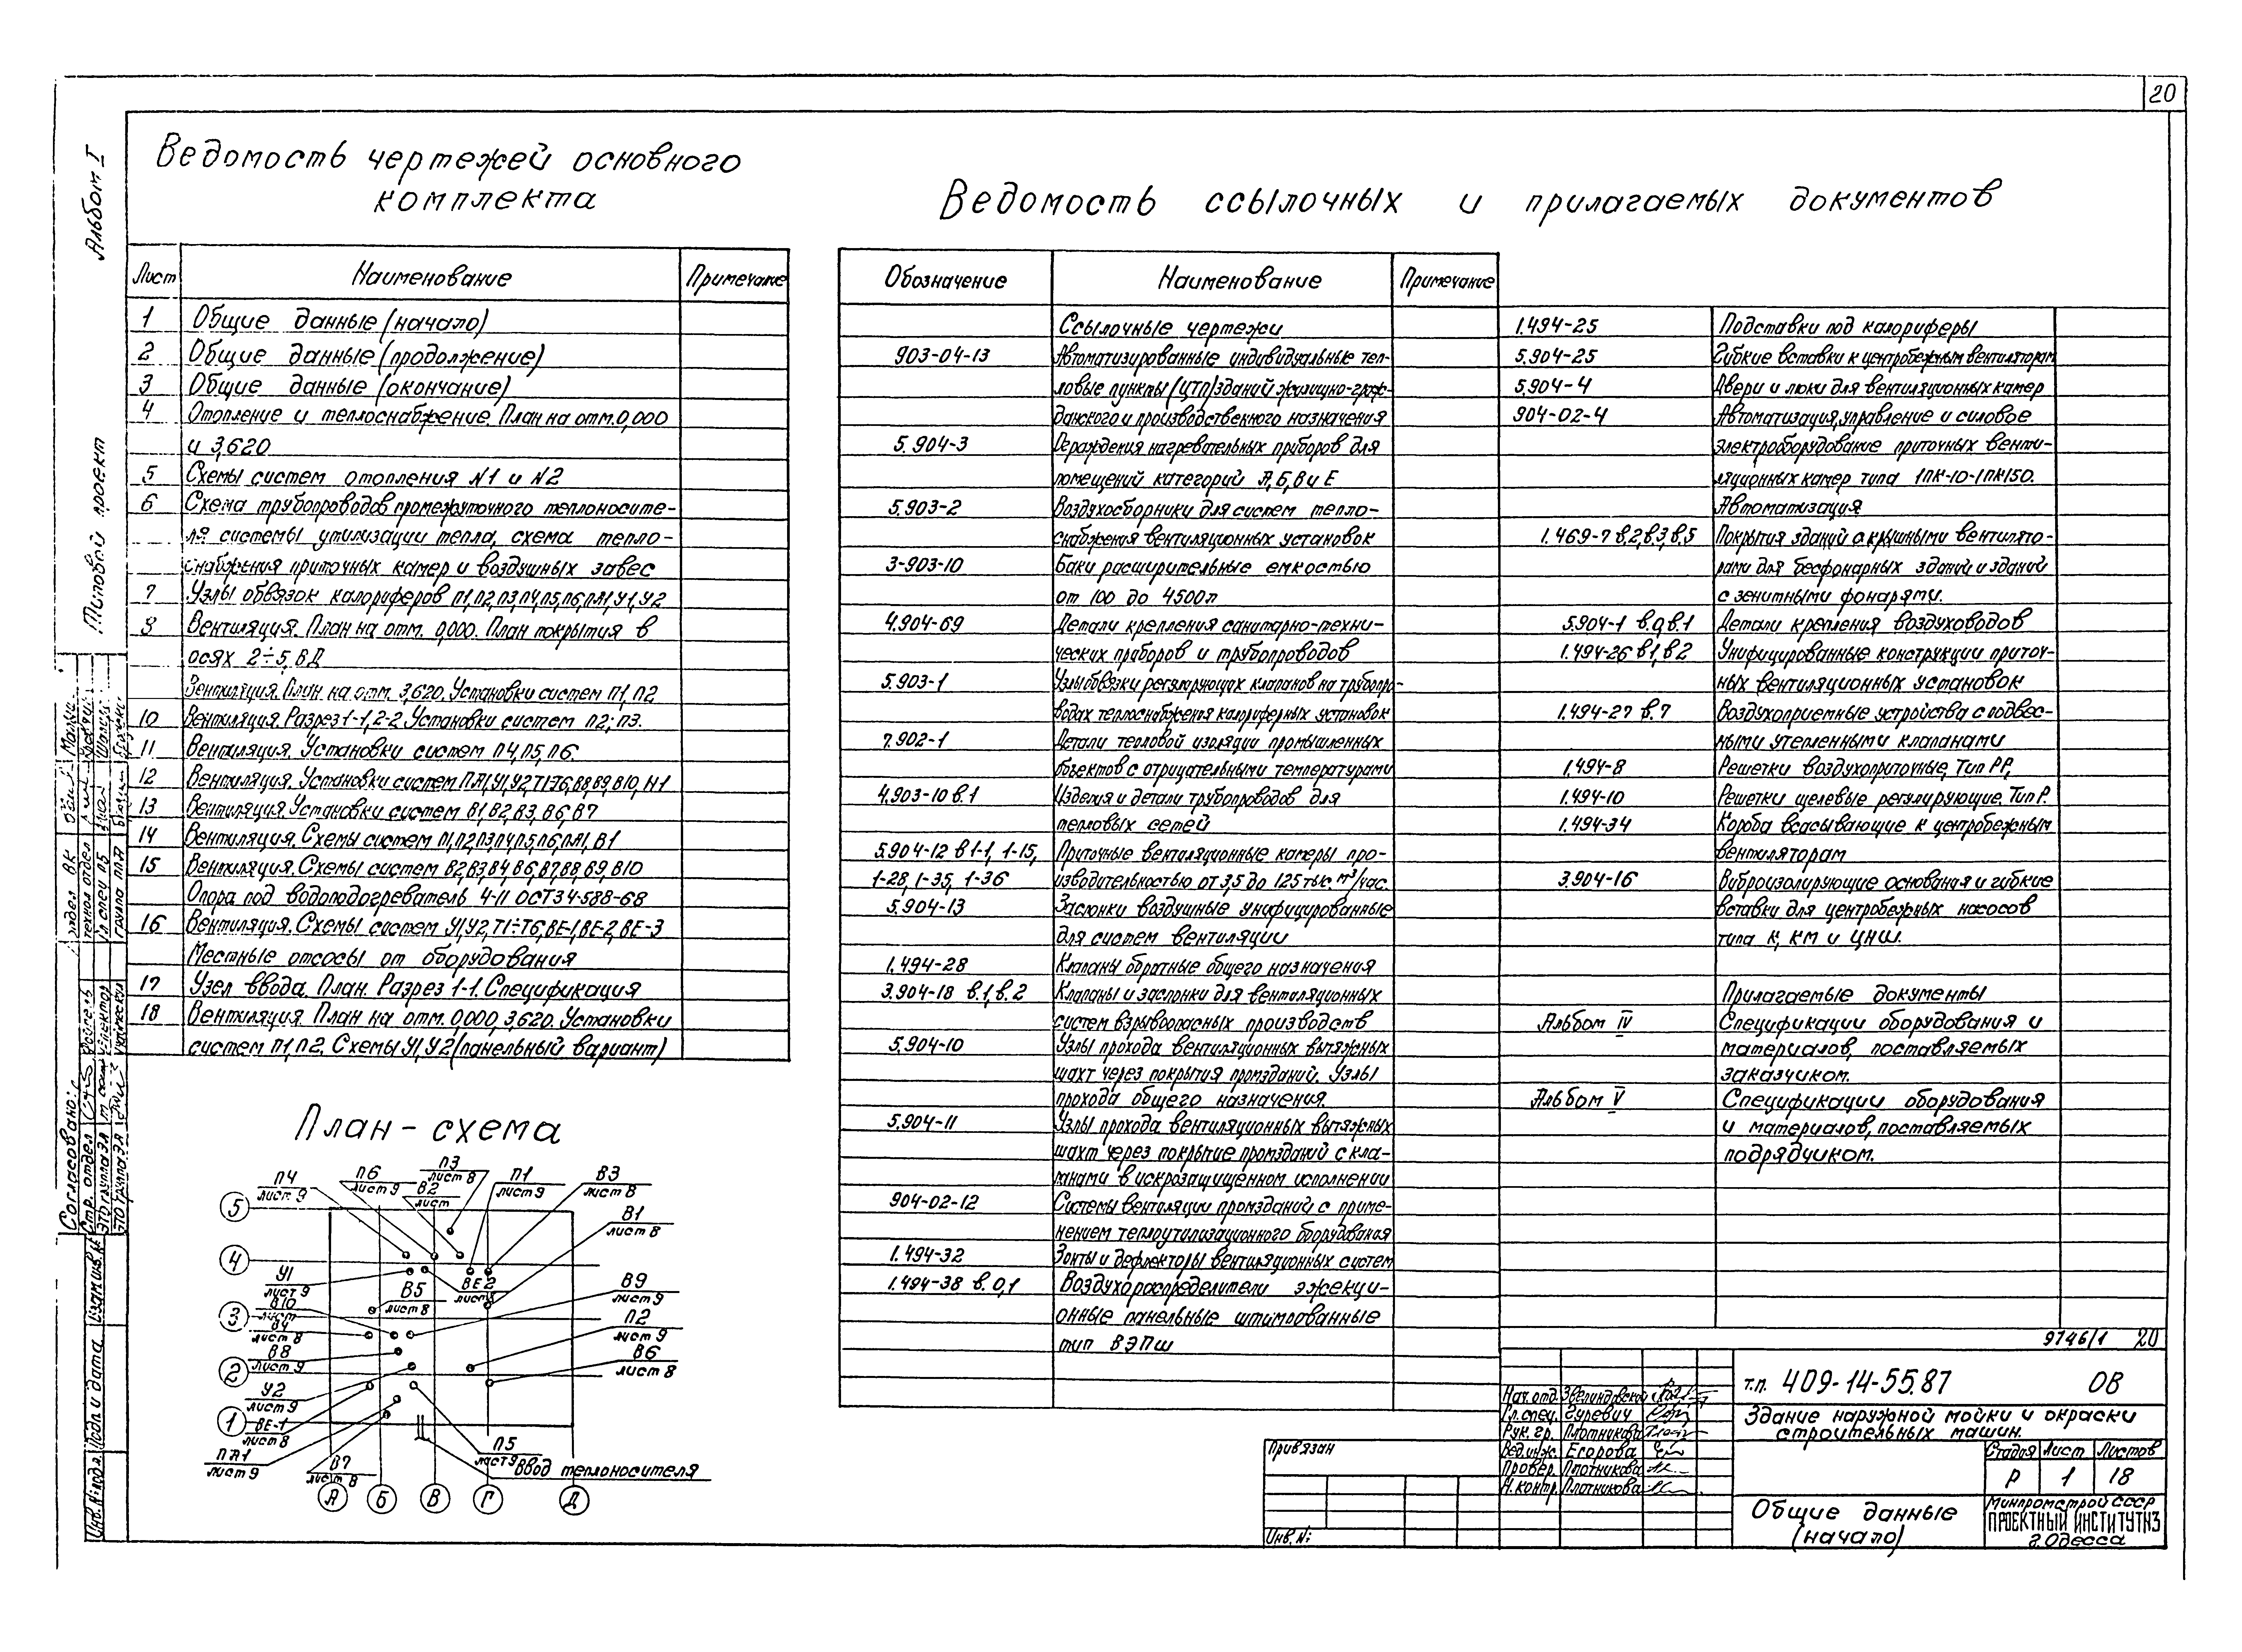 20
Альбом I
Типовой проект
Ведомость чертежей основного
комплекта
Лист Наименование Примечание
1 Общие данные (начало)
2 Общие данные (продолжение)
3 Общие данные (окончание)
4 Отопление и теплоснабжение. План на отм. 0,000
и 3,620
5 Схемы систем отопления N1 и N2
6 Схема трубопроводов промежуточного теплоносите-
ля системы утилизации тепла, схема тепло-
снабжения приточных камер и воздушных завес
7 Узлы обвязок калориферов П1,П2,П3,П4,П5,П6,ПА1,У1,У2
8 Вентиляция. План на отм. 0,000. План покрытия в
осях 2÷5, В,Д
Вентиляция. План. на отм. 3,620. Установки систем П1, П2
10 Вентиляция. Разрез 1-1, 2-2. Установки систем П2; П3.
11 Вентиляция. Установки систем П4, П5, П6.
12 Вентиляция. Установки систем ПА1,У1,У2,Т1÷Т6,В8,В9,В10, Н1
13 Вентиляция Установки систем В1, В2, В3, В6, В7
14 Вентиляция. Схемы систем П1,П2,П3,П4,П5,П6,ПА1, В1
15 Вентиляция. Схемы систем В2,В3,В4,В6,В7,В8,В9,В10
Опора под водоподогреватель 4-11 ОСТ34-588-68
16 Вентиляция. Схемы систем У1,У2,Т1÷Т6,ВЕ-1,ВЕ-2,ВЕ-3
Местные отсосы от оборудования
17 Узел ввода. План. Разрез 1-1. Спецификация
18 Вентиляция. План на отм. 0,000, 3,620. Установки
систем П1, П2. Схемы У1, У2 (панельный вариант)
Ведомость ссылочных и прилагаемых документов
Обозначение Наименование Примечание
Ссылочные чертежи
903-04-13 Автоматизированные индивидуальные теп-
ловые пункты (ЦТП) зданий жилищно-граж-
данского и производственного назначения
5.904-3 Ограждения нагревательных приборов для
помещений категорий А, Б, В и Е
5.903-2 Воздухосборники для систем тепло-
снабжения вентиляционных установок
3-903-10 Баки расширительные емкостью
от 100 до 4500л
4.904-69 Детали крепления санитарно-техни-
ческих приборов и трубопроводов
5.903-1 Узлы обвязки регулирующих клапанов на трубопро-
водах теплоснабжения калориферных установок
7.902-1 Детали тепловой изоляции промышленных
объектов с отрицательными температурами
4.903-10 в.1 Изделия и детали трубопроводов для
тепловых сетей
5.904-12 в1-1, 1-15, Приточные вентиляционные камеры про-
1-28, 1-35, 1-36 изводительностью от 3,5 до 125 тыс. м³/час.
5.904-13 Заслонки воздушные унифицированные
для систем вентиляции
1.494-28 Клапаны обратные общего назначения
3.904-18 в.1, в.2 Клапаны и заслонки для вентиляционных
систем взрывоопасных производств
5.904-10 Узлы прохода вентиляционных вытяжных
шахт через покрытия промзданий. Узлы
прохода общего назначения.
5.904-11 Узлы прохода вентиляционных вытяжных
шахт через покрытие промзданий с кла-
панами в искрозащищенном исполнении
904-02-12 Системы вентиляции промзданий с приме-
нением теплоутилизационного оборудования
1.494-32 Зонты и дефлекторы вентиляционных систем
1.494-38 в.0,1 Воздухораспределители эжекци-
онные панельные штампованные
тип ВЭПш
1.494-25 Подставки под калориферы
5.904-25 Гибкие вставки к центробежным вентиляторам
5.904-4 Двери и люки для вентиляционных камер
904-02-4 Автоматизация, управление и силовое
электрооборудование приточных венти-
ляционных камер типа 1ПК-10-1ПК150.
Автоматизация
1.469-7 в.2,в3,в.5 Покрытия зданий с крышными вентилято-
рами для бесфонарных зданий и зданий
с зенитными фонарями.
5.904-1 в.0,в.1 Детали крепления воздуховодов
1.494-26 в1, в2 Унифицированные конструкции приточ-
ных вентиляционных установок
1.494-27 в.7 Воздухоприемные устройства с подвес-
ными утепленными клапанами
1.494-8 Решетки воздухоприточные, Тип РР,
1.494-10 Решетки щелевые регулирующие. Тип Р.
1.494-34 Короба всасывающие к центробежным
вентиляторам
3.904-16 Виброизолирующие основания и гибкие
вставки для центробежных насосов
типа К, КМ и ЦНШ.
Прилагаемые документы
Альбом IV Спецификации оборудования и
материалов, поставляемых
заказчиком.
Альбом V Спецификации оборудования
и материалов, поставляемых
подрядчиком.
План-схема
П4 лист 9
П6 лист 9
П3 лист 8
В2 лист
П1 лист 9
В3 лист 8
В1 лист 8
5
4
3
2
1
У1 лист 9
В10 лист
В5 лист 8
ВЕ2 лист
В9 лист 9
В4 лист 8
П2 лист 9
В8 лист 9
В6 лист 8
У2 лист 9
ВЕ-1 лист 8
ПА1 лист 9
В7 лист 8
П5 лист 9
Ввод теплоносителя
А Б В Г Д
Согласовано:
Стр. отдел
ЭТО группа ЭЛ
ЭТО группа ЭЛ
отдел ВК
технол отдел
Гл спец ПБ
группа ППА
Инв. N подл. Подп и дата Взам инв. N
9746/1 20
Привязан
Инв. N:
Нач. отд. Звениговский
Гл. спец. Гуревич
Рук. гр. Плотникова
Вед.инж. Егорова
Провер. Плотникова
Н. контр. Плотникова
т.п. 409-14-55.87 ОВ
Здание наружной мойки и окраски
строительных машин.
Стадия Лист Листов
Р 1 18
Общие данные
(начало)
Минпромстрой СССР
ПРОЕКТНЫЙ ИНСТИТУТ N3
г. Одесса